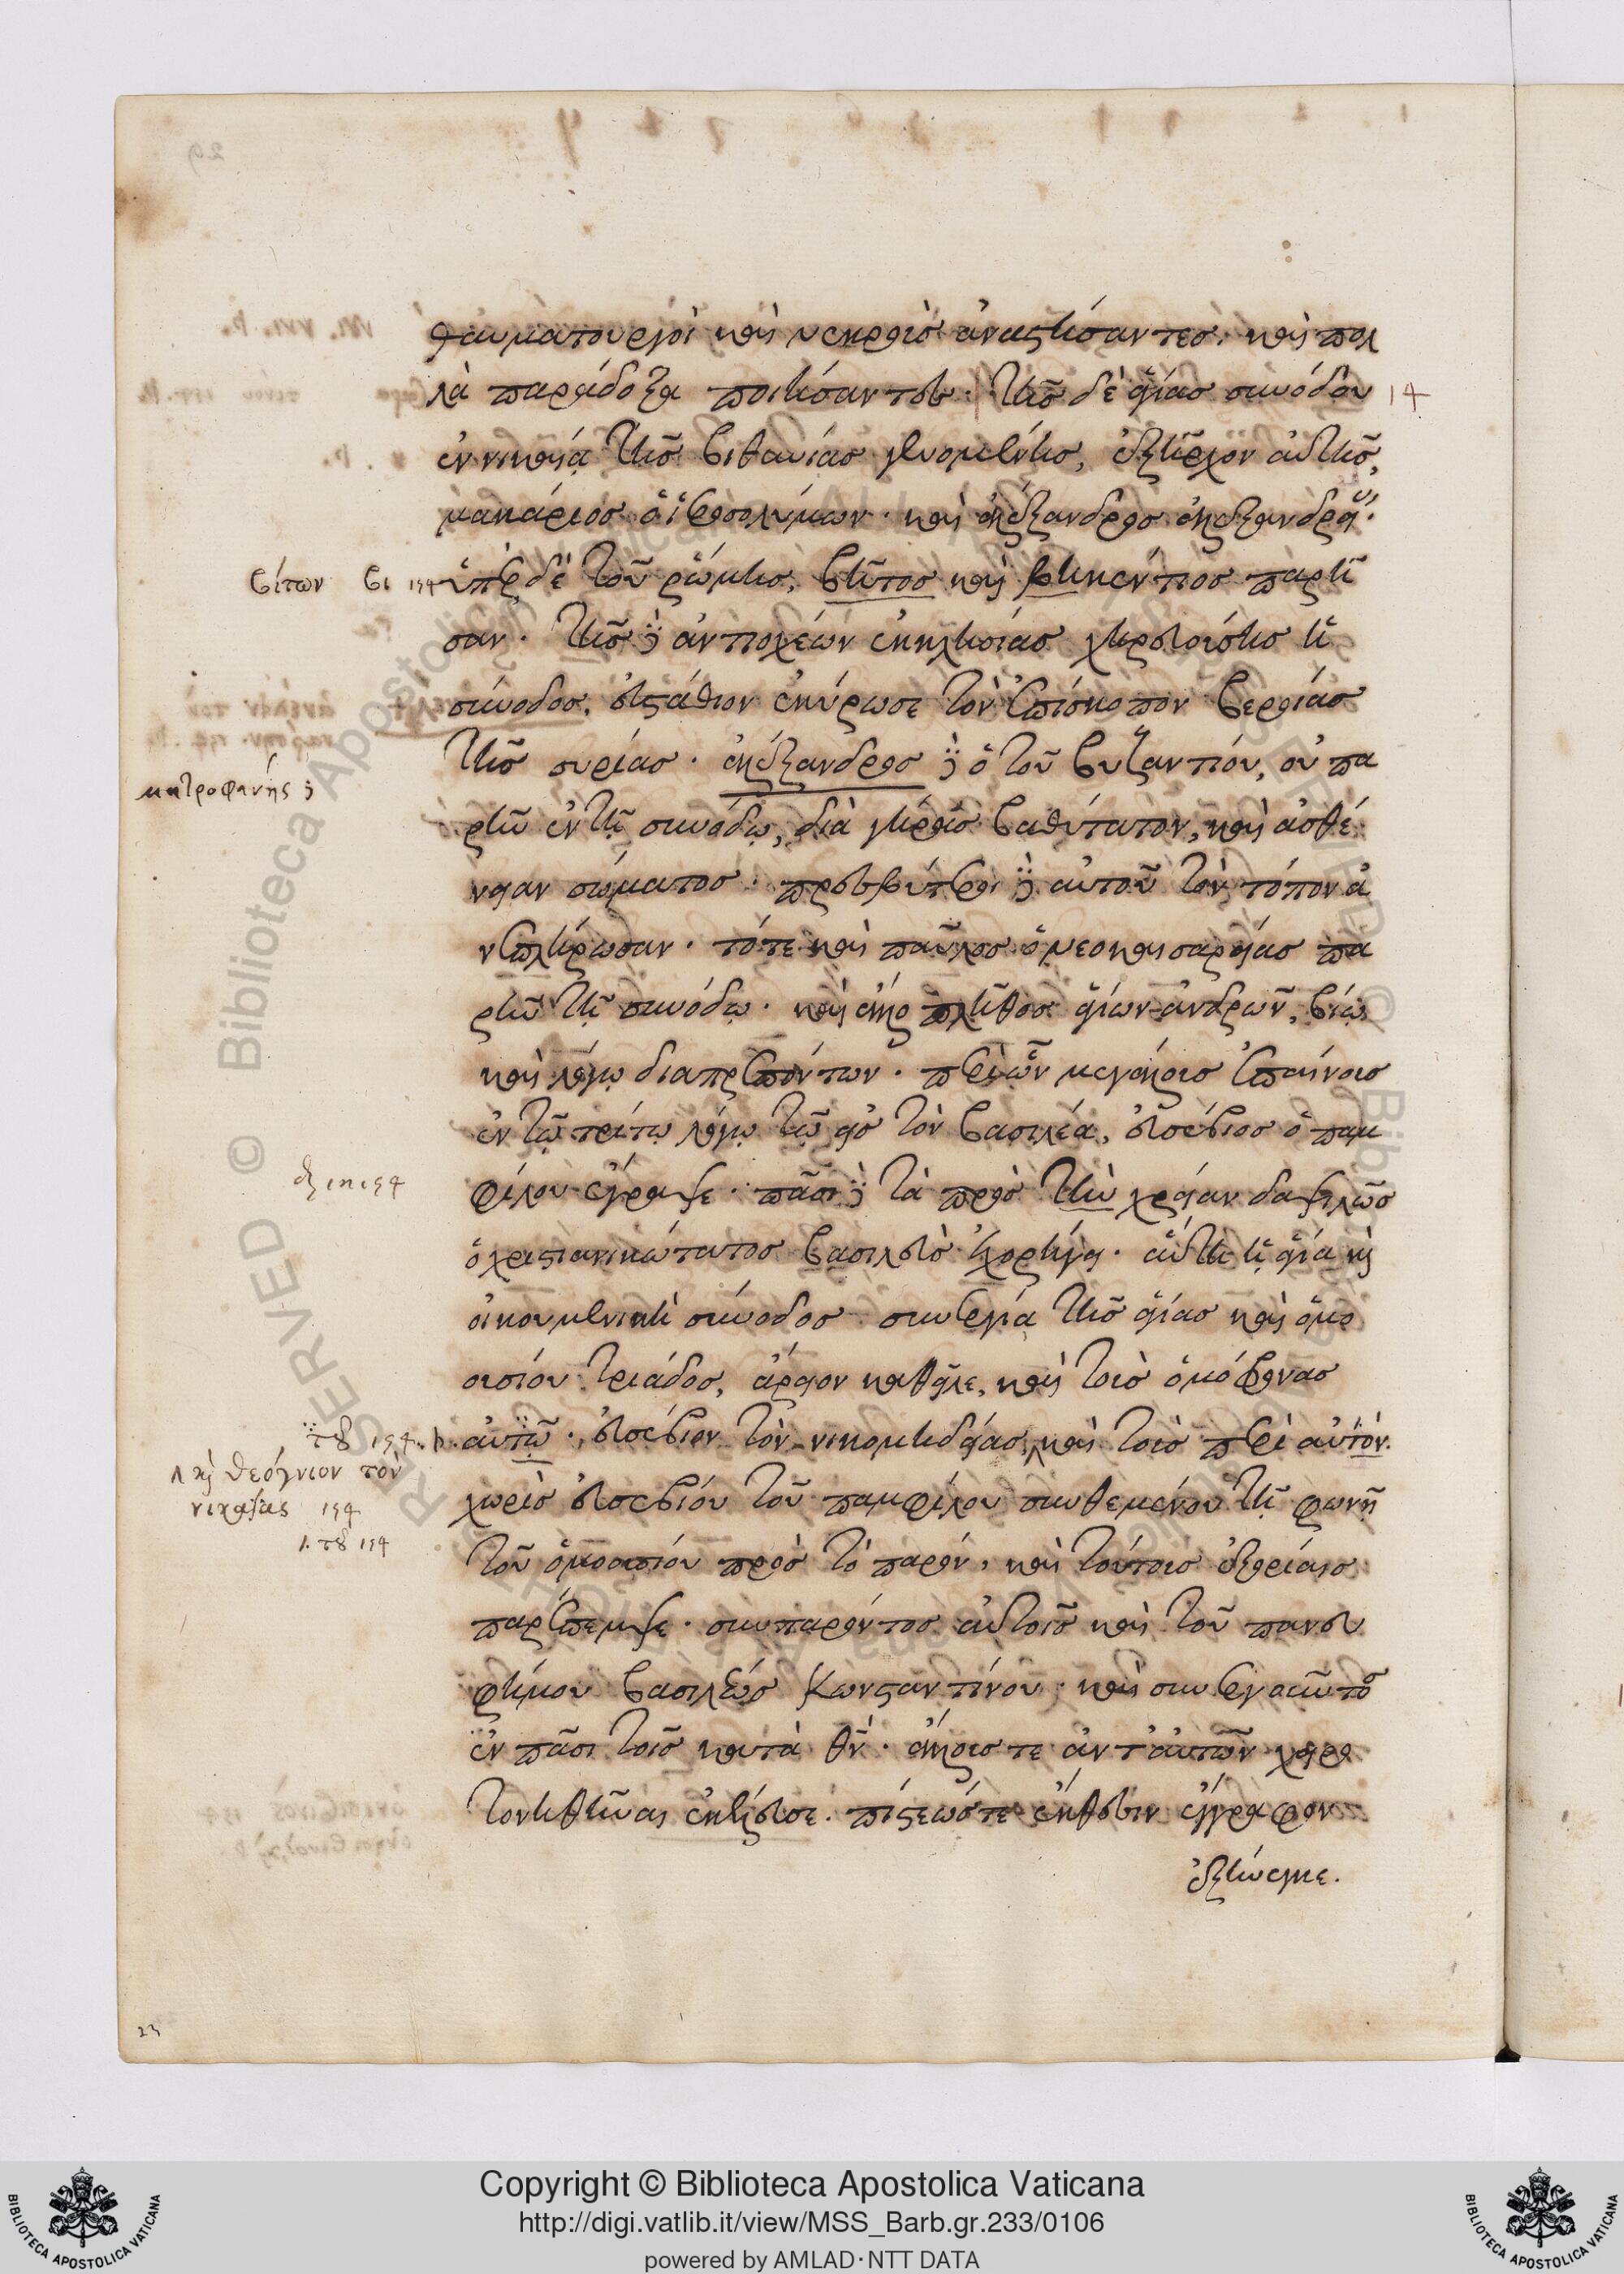 θαυματουργοὶ καὶ νεκροὺς ἀναστήσαντες. καὶ πολ
λὰ παράδοξα ποιήσαντες. τῆς δὲ ἁγίας συνόδου 14
ἐν νικαίᾳ τῆς βιθυνίας γενομένης, ἐξῆρχον αὐτῆς,
μακάριος ὁ ἱεροσολύμων. καὶ ἀλέξανδρος ἀλεξανδρείας.
βίτων βι 194 ὑπὲρ δὲ τοῦ ῥώμης, βῆτος καὶ βηκέντιος παρῆ
σαν. τῆς δὲ ἀντιοχέων ἐκκλησίας χηρευούσης ἡ
σύνοδος, εὐστάθιον ἐκύρωσε τὸν ἐπίσκοπον βερροίας
τῆς συρίας. ἀλέξανδρος δὲ ὁ τοῦ βυζαντίου, οὐ πα
μητροφάνης δὲ
ρῆν ἐν τῇ συνόδῳ, διὰ γήρας βαθύτατον, καὶ ἀσθέ
νειαν σώματος. πρεσβύτεροι δὲ αὐτοῦ τὸν τόπον ἀ
νεπλήρωσαν. τότε καὶ παῦλος ὁ νεοκαισαρείας πα
ρῆν τῇ συνόδῳ. καὶ ἄλλο πλῆθος ἁγίων ἀνδρῶν, βίῳ
καὶ λόγῳ διαπρεπόντων. περὶ ὧν μεγάλοις ἐπαίνοις
ἐν τῷ τρίτῳ λόγῳ τῷ εἰς τὸν βασιλέα, εὐσέβιος ὁ παμ
φίλου ἔγραψε. πᾶσι δὲ τὰ πρὸς τὴν χρείαν δαψιλῶς
ὁ χριστιανικώτατος βασιλεὺς ἐχορήγει. αὕτη ἡ ἁγία καὶ
οἰκουμενικὴ σύνοδος συνεργίᾳ τῆς ἁγίας καὶ ὁμο
ουσίου τριάδος, ἄρειον καθεῖλε, καὶ τοὺς ὁμόφρονας
τοῦ 194. αὐτῷ. εὐσέβιον τὸν νικομηδείας, καὶ τοὺς περὶ αὐτόν.
καὶ θεόγνιον τὸν
νικαίας 194
χωρὶς εὐσεβίου τοῦ παμφίλου συνθεμένου τῇ φωνῇ
1. τοῦ 194
τοῦ ὁμοουσίου πρὸς τὸ παρόν, καὶ τούτους ἐξορίαις
παρέπεμψε. συμπαρόντος αὐτοῖς καὶ τοῦ πανευ
φήμου βασιλέως κωνσταντίνου. καὶ συνεργοῦντος
ἐν πᾶσι τοῖς κατὰ θν. ἄλλους τε ἀντ' αὐτῶν χειρο
τονηθῆναι ἐκέλευσε. πίστεώς τε ἔκθεσιν ἔγγραφον
ἐξήνεγκε.
23
Copyright © Biblioteca Apostolica Vaticana
http://digi.vatlib.it/view/MSS_Barb.gr.233/0106
powered by AMLAD·NTT DATA
BIBLIOTECA APOSTOLICA VATICANA
BIBLIOTECA APOSTOLICA VATICANA